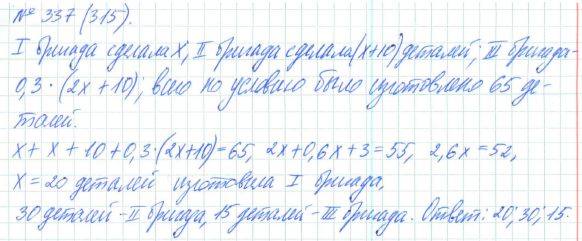 № 337 (315).
I бригада сделала x, II бригада сделала (x+10) деталей; III бригада -
0,3 · (2x + 10); всего по условию было изготовлено 65 де-
талей.
x + x + 10 + 0,3 · (2x+10) = 65, 2x + 0,6x + 3 = 55, 2,6x = 52,
x = 20 деталей изготовила I бригада,
30 деталей - II бригада, 15 деталей - III бригада. Ответ: 20; 30; 15.